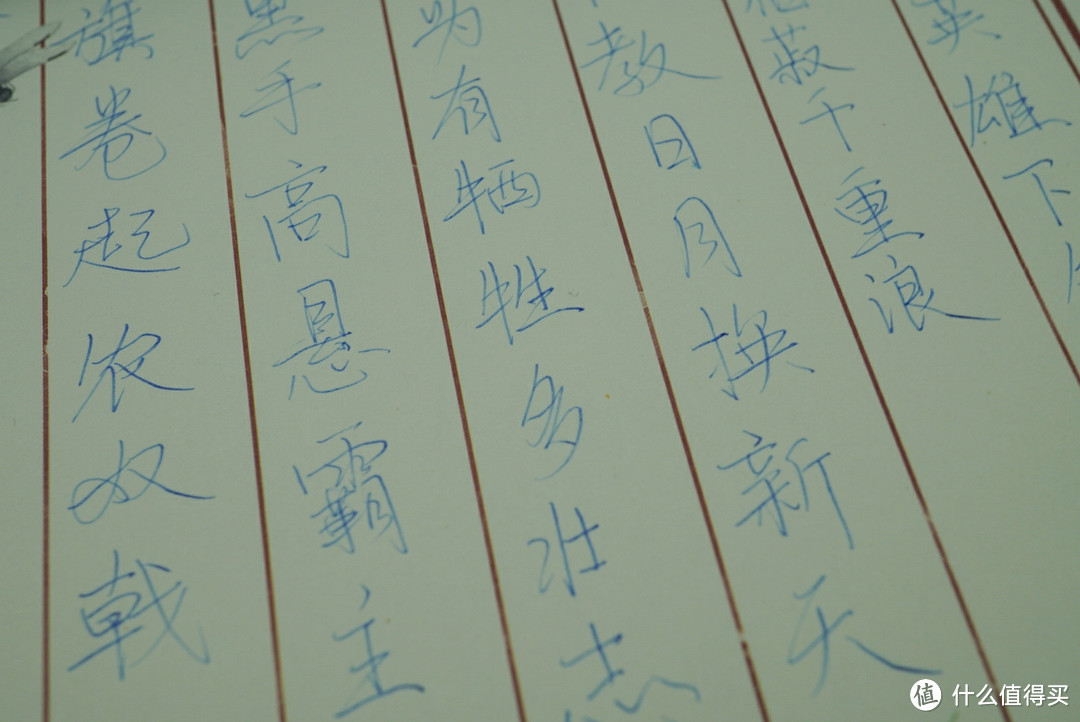 旗卷起农奴戟
黑手高悬霸主
为有牺牲多壮志
教日月换新天
菽千重浪
英雄下
值 什么值得买